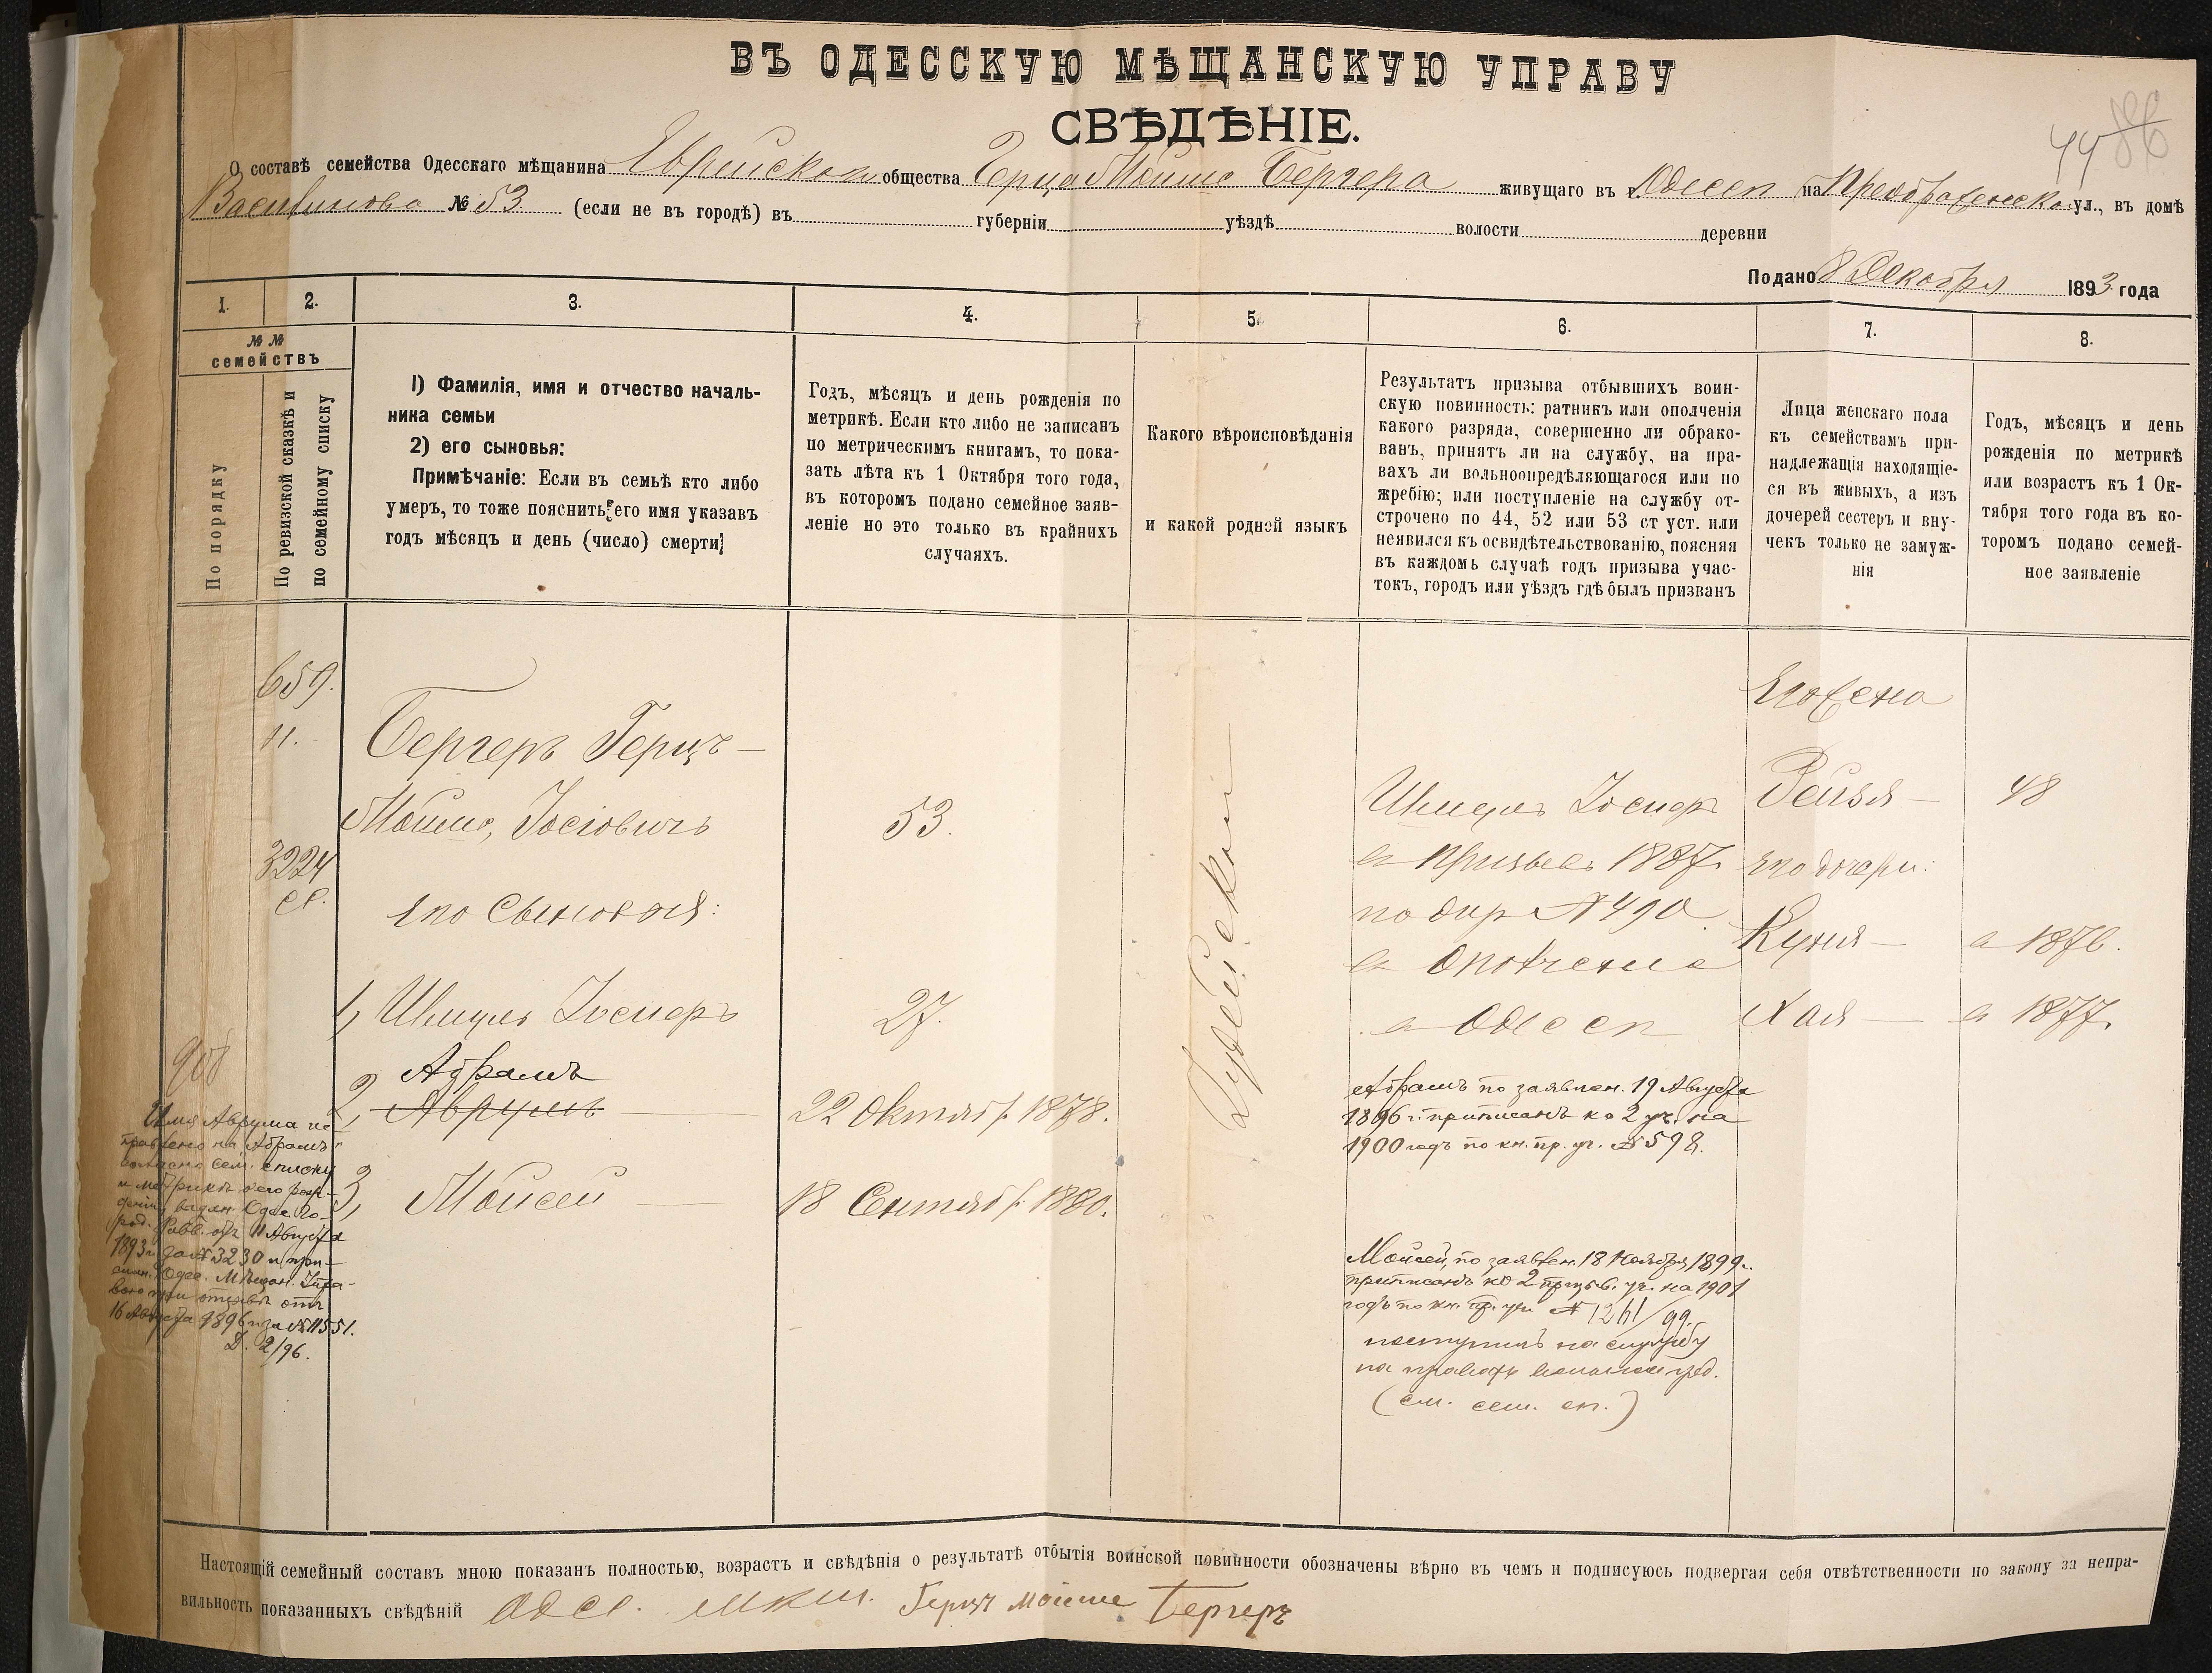 ВЪ ОДЕССКУЮ МѢЩАНСКУЮ УПРАВУ
СВѢДѢНІЕ.
4486
О составѣ семейства Одесскаго мѣщанина Еврейскаго общества Герца Мойше Бергера живущаго въ г. Одессѣ на Преображенской ул., въ домѣ
№ 53 (если не въ городѣ) въ губерніи уѣздѣ волости деревни
Подано 8 Декабря 1893 года
1. 2. 3. 4. 5. 6. 7. 8.
№ №
семействъ
По порядку
По ревизской сказкѣ и
по семейному списку
1) Фамилія, имя и отчество началь-
ника семьи
2) его сыновья:
Примѣчаніе: Если въ семьѣ кто либо
умеръ, то тоже пояснить его имя указавъ
годъ мѣсяцъ и день (число) смерти
Годъ, мѣсяцъ и день рожденія по
метрикѣ. Если кто либо не записанъ
по метрическимъ книгамъ, то пока-
зать лѣта къ 1 Октября того года,
въ которомъ подано семейное заяв-
леніе но это только въ крайнихъ
случаяхъ.
Какого вѣроисповѣданія
и какой родной языкъ
Результатъ призыва отбывшихъ воин-
скую повинность: ратникъ или ополченія
какого разряда, совершенно ли обрако-
ванъ, принятъ ли на службу, на пра-
вахъ ли вольноопредѣляющагося или по
жребію; или поступленіе на службу от-
строчено по 44, 52 или 53 ст уст. или
неявился къ освидѣтельствованію, поясняя
въ каждомъ случаѣ годъ призыва учас-
токъ, городъ или уѣздъ гдѣ былъ призванъ
Лица женскаго пола
къ семействамъ при-
надлежащія находящіе-
ся въ живыхъ, а изъ
дочерей сестеръ и вну-
чекъ только не замуж-
нія
Годъ, мѣсяцъ и день
рожденія по метрикѣ
или возрастъ къ 1 Ок-
тября того года въ ко-
торомъ подано семей-
ное заявленіе
659.
н.
3224
ст.
Бергеръ Герцъ —
Мойше, Іосіовичъ
53.
его сыновья:
1, Шмуль Іосифъ
27.
Абрамъ
2, Аврумъ
22 Октября 1878.
3, Мойсей
18 Сентября 1880.
Іудейском
Шмуль Іосифъ
въ призывѣ 1887.
по № 490
въ Ополченіе
въ Одессѣ
Абрамъ по заявлен. 19 Августа
1896 г. приписанъ ко 2 уч. на
1900 годъ по кн. пр. уч. № 598.
Мойсей, по заявлен. 18 Ноября 1899 г.
приписанъ ко 2 призыв. уч. на 1901
годъ по кн. пр. уч. № 1261/99.
поступилъ на службу
на правахъ вольноопред.
(см. сем. сп.)
Его жена
Рейзя — 48
его дочери:
Куня — въ 1876.
Хая — въ 1877.
908
Имя Аврума ис-
правлено на „Абрамъ“
согласно сем. списку
и метрики о его рож-
деніи, выдан. Одес. Го-
род. Равв. отъ 11 Августа
1893 г. за № 3230 и при-
слан. Одес. Мѣщан. Упра-
вою при отзывѣ отъ
16 Августа 1896 г. за № 11551.
Д. 2/96.
Настоящій семейный составъ мною показанъ полностью, возрастъ и свѣдѣнія о результатѣ отбытія воинской повинности обозначены вѣрно въ чемъ и подписуюсь подвергая себя отвѣтственности по закону за непра-
вильность показанныхъ свѣдѣній Одес. Герцъ Мойше Бергеръ